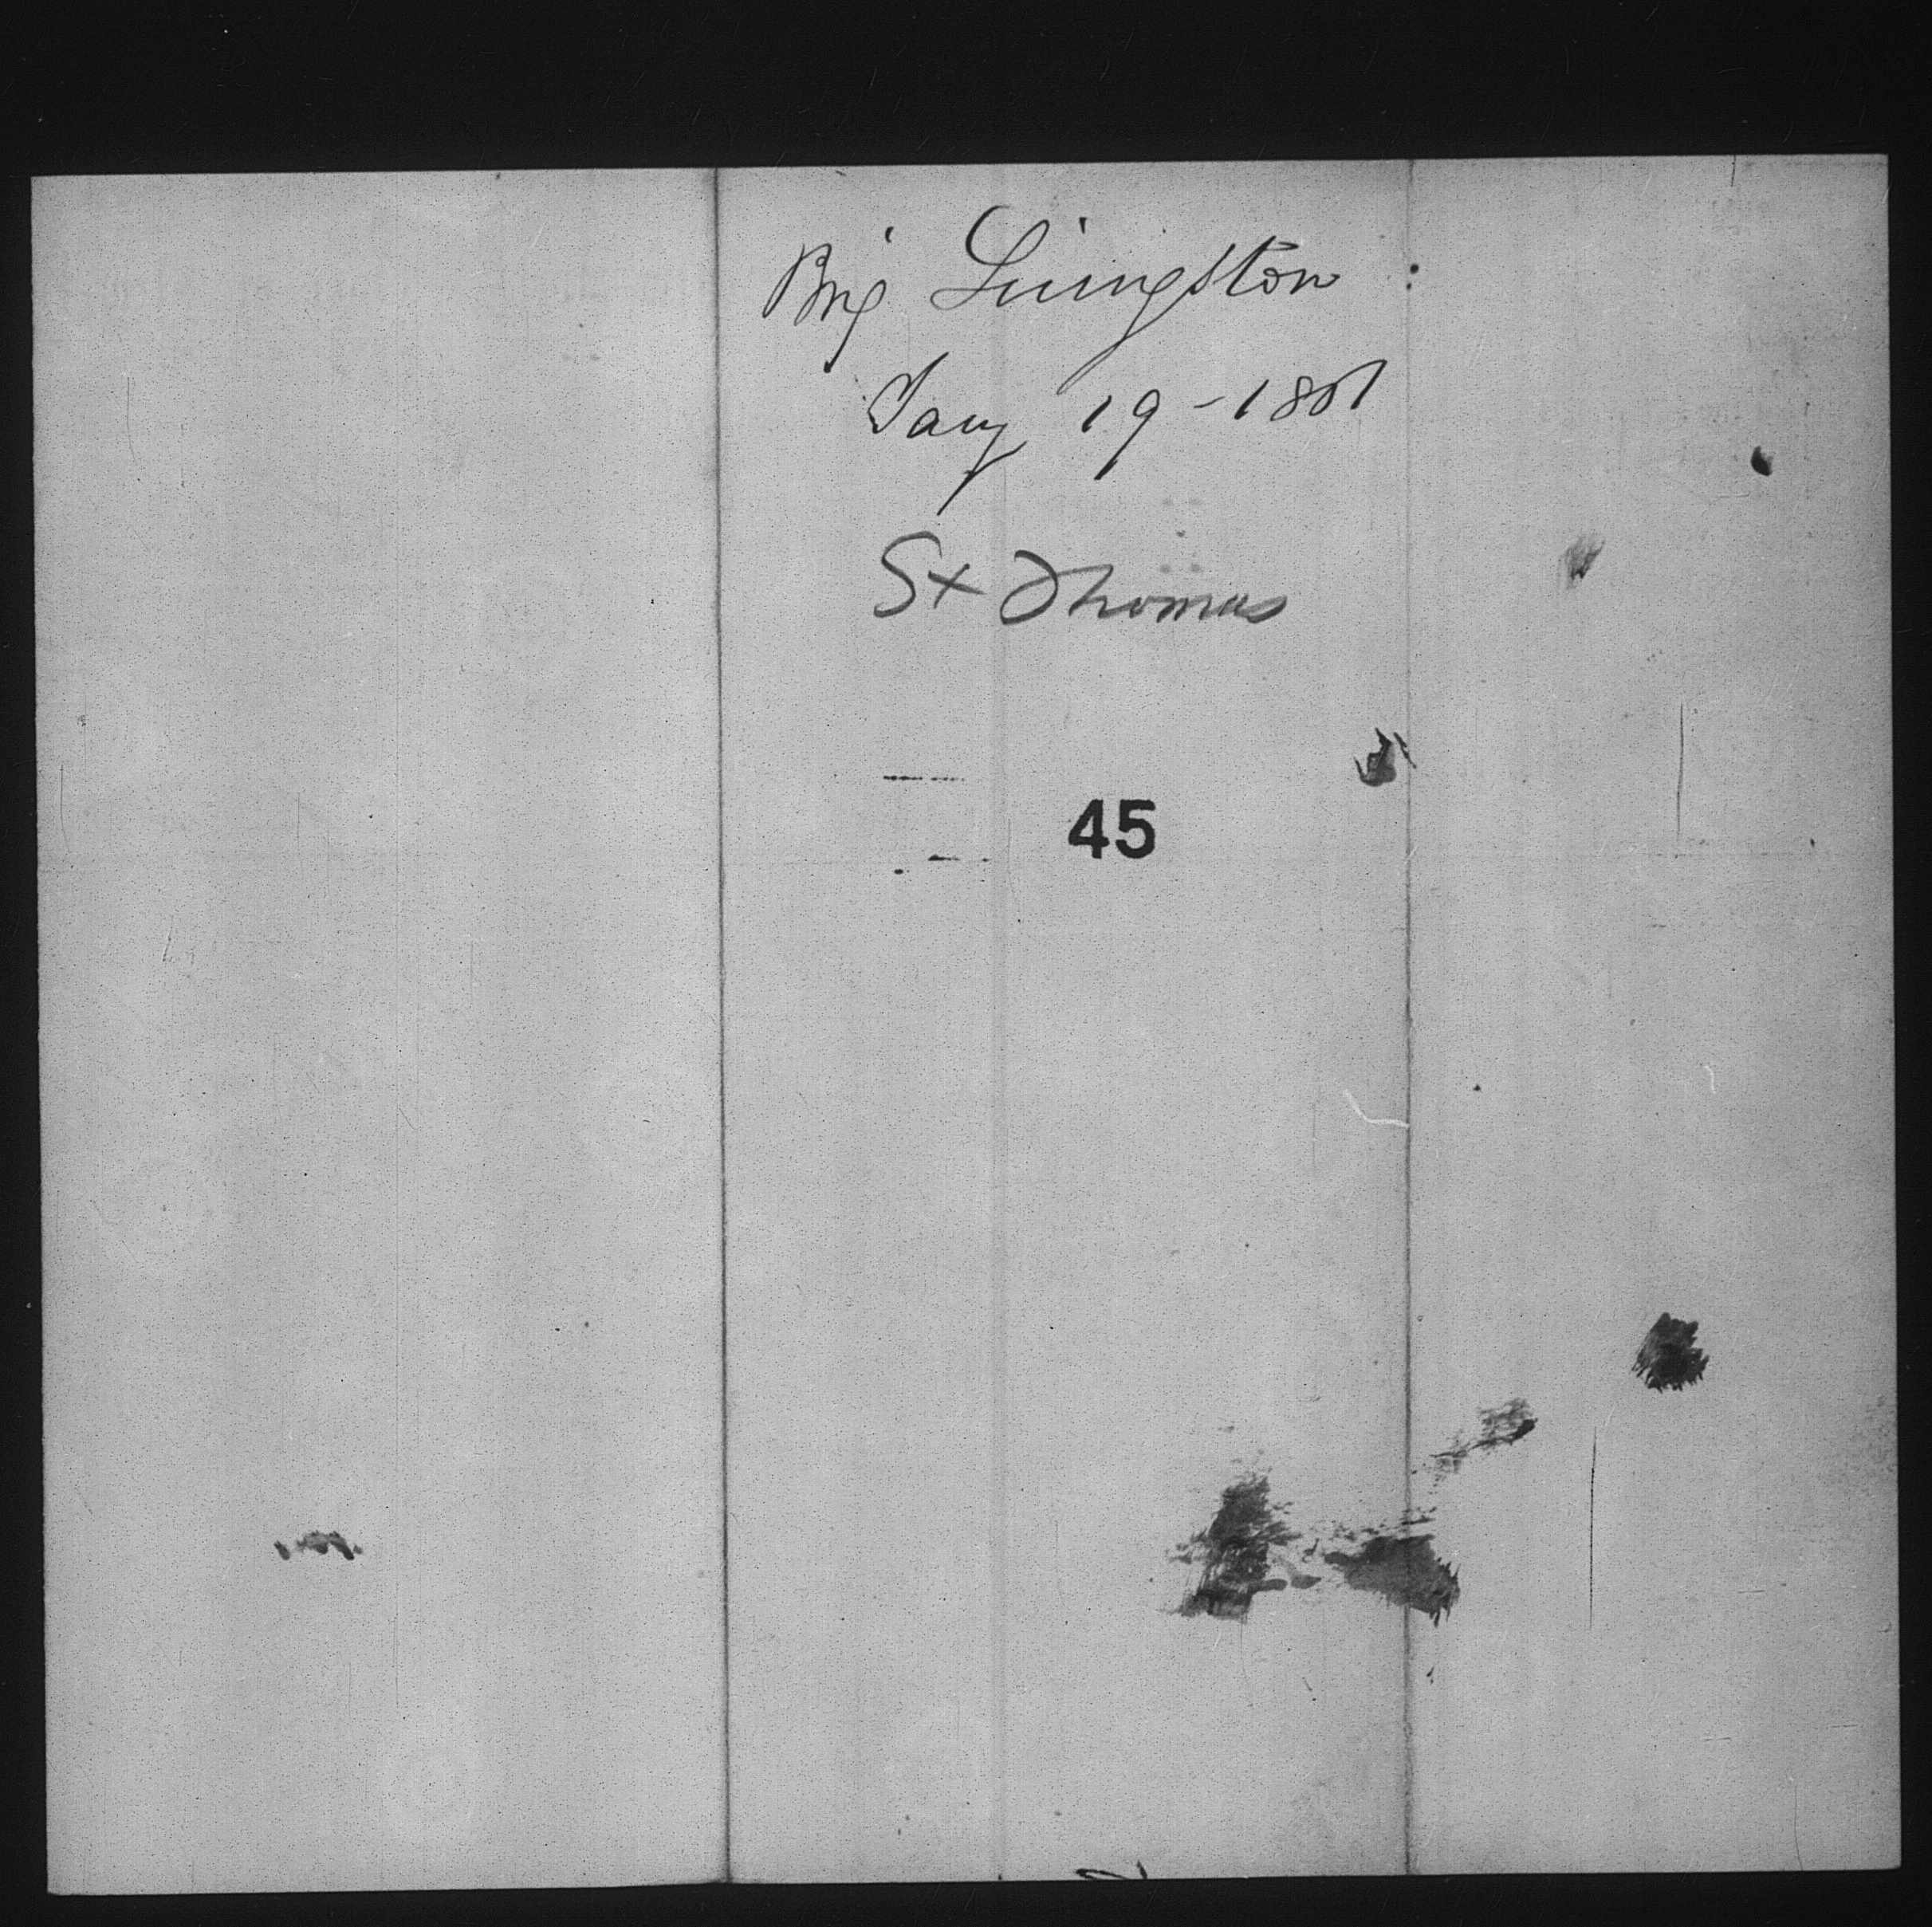 Brig Livingston :
Jany 19 - 1801
St Thomas
45